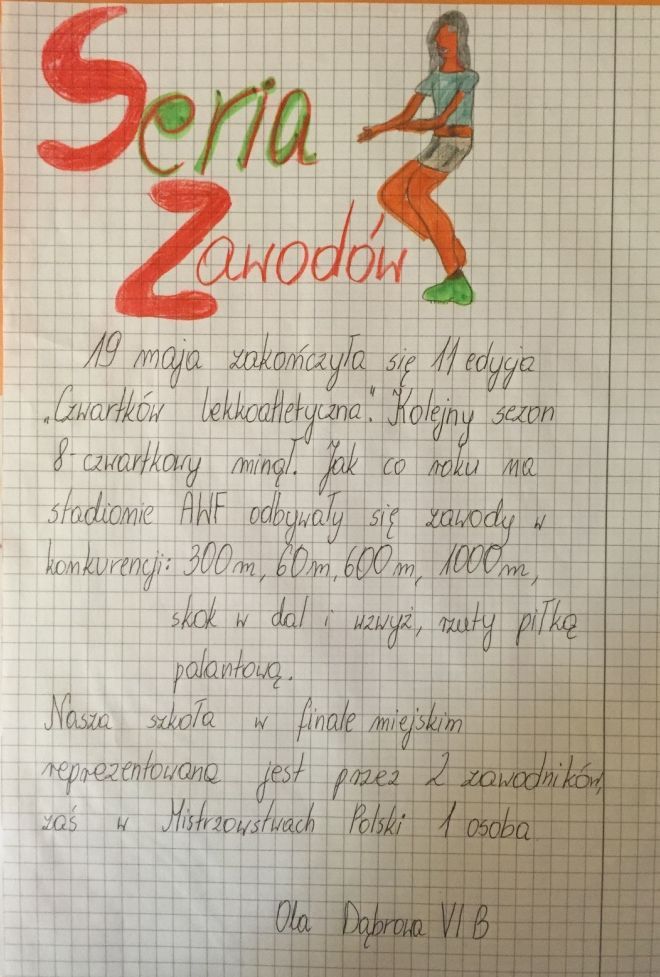 Seria
Zawodów
19 maja zakończyła się 11 edycja
„Czwartków lekkoatletyczna". Kolejny sezon
8-czwartkowy minął. Jak co roku na
stadionie AWF odbywały się zawody w
konkurencji: 300m, 60m, 600m, 1000m,
skok w dal i wzwyż, rzuty piłką
palantową.
Nasza szkoła w finale miejskim
reprezentowana jest przez 2 zawodników,
zaś w Mistrzostwach Polski 1 osoba
Ola Dąbrowa VI B